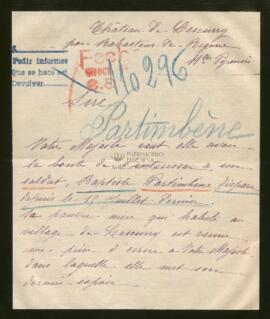 Château de Lescurry
par Rabastens-de-Bigorre
Htes Pyrénées
Pedir informes
Que se hace así
Devolver
116296
Sire
Partimbène
Votre Majesté veut elle avoir
la bonté de s'intéresser à un
soldat, Baptiste Partimbène disparu
depuis le 15 Juillet dernier.
Sa pauvre mère qui habite au
village de Lescurry est venue
me prier d'écrire à Votre Majesté
dans laquelle elle met son
dernier espoir.